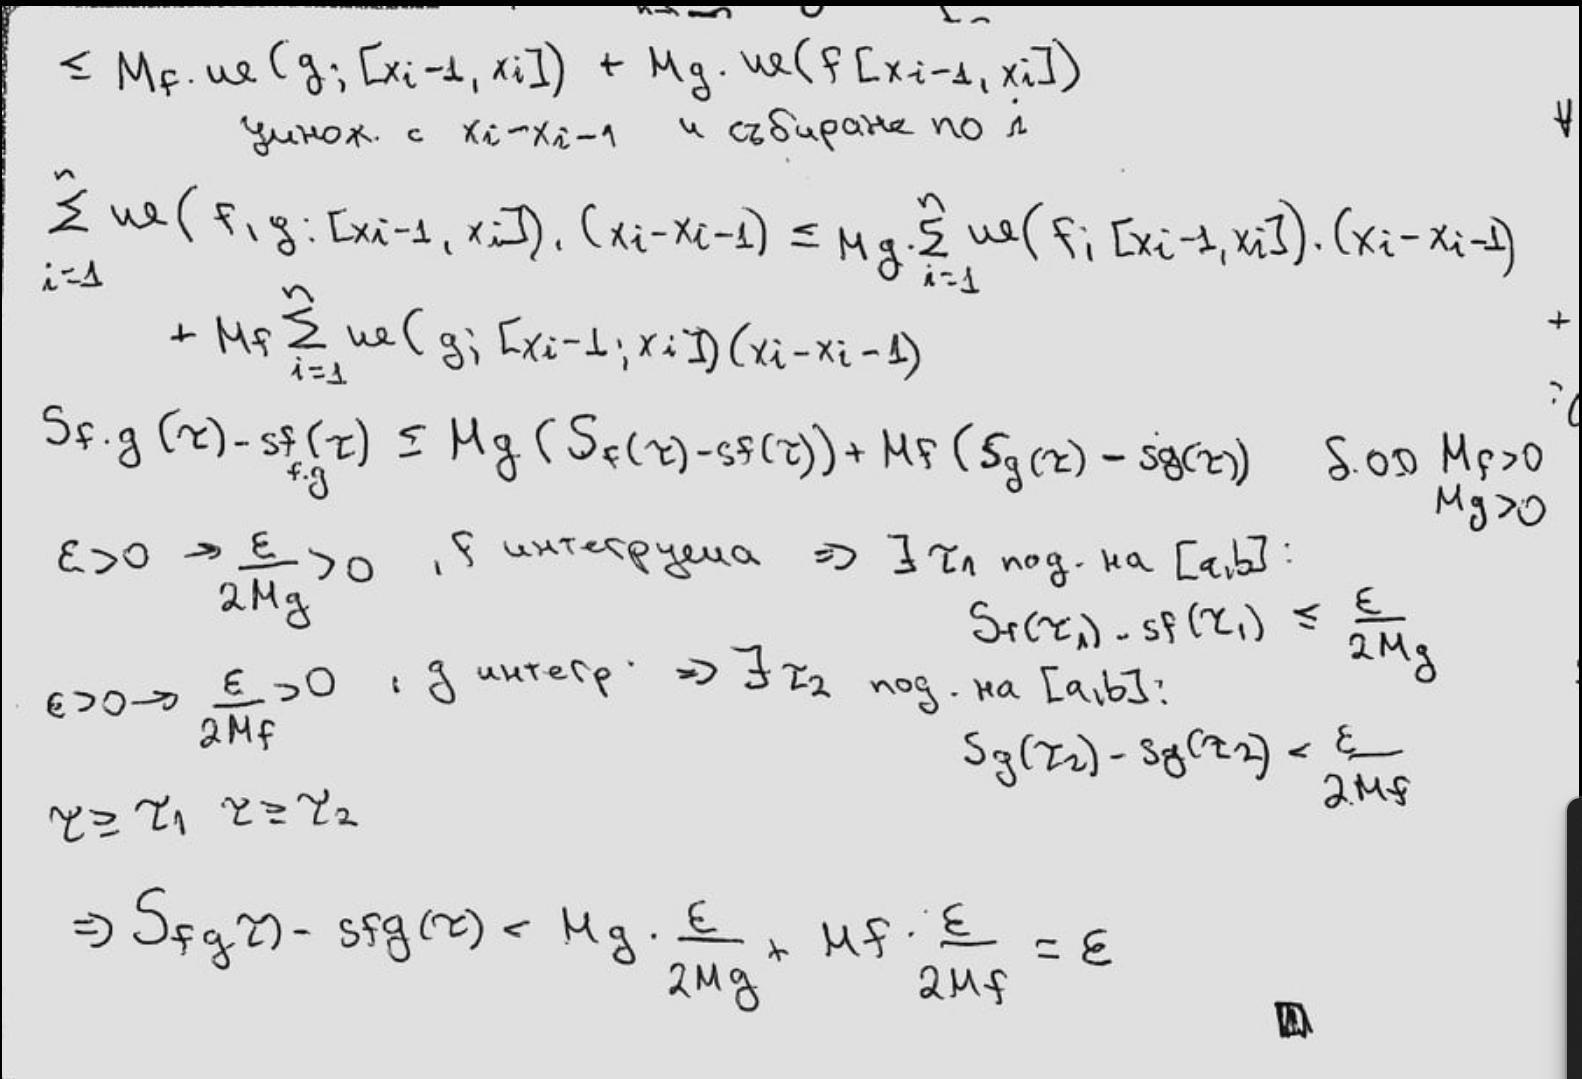 ≤ Mf. ωε(g; [xi-1, xi]) + Mg. ωε(f [xi-1, xi])
умнож. с xi-xi-1 и събиране по i
∀
n Σ i=1 ωε(f, g: [xi-1, xi]). (xi-xi-1) ≤ Mg. n Σ i=1 ωε(f; [xi-1, xi]). (xi-xi-1)
+ Mf n Σ i=1 ωε(g; [xi-1; xi]) (xi-xi-1)
+
Sf.g (τ) - sf(τ) f.g ≤ Mg (Sf(τ)-sf(τ)) + Mf (Sg(τ) - sg(τ)) б.оо Mf>0
Mg>0
ε>0 → ε/2Mg >0 , f интегруема ⇒ ∃ τ1 под. на [a,b]:
Sf(τ1) - sf(τ1) ≤ ε/2Mg
ε>0 → ε/2Mf >0 , g интегр. ⇒ ∃ τ2 под. на [a,b]:
Sg(τ2) - sg(τ2) < ε/2Mf
τ ≥ τ1 τ ≥ τ2
⇒ Sfg τ) - sfg(τ) < Mg . ε/2Mg + Mf . ε/2Mf = ε